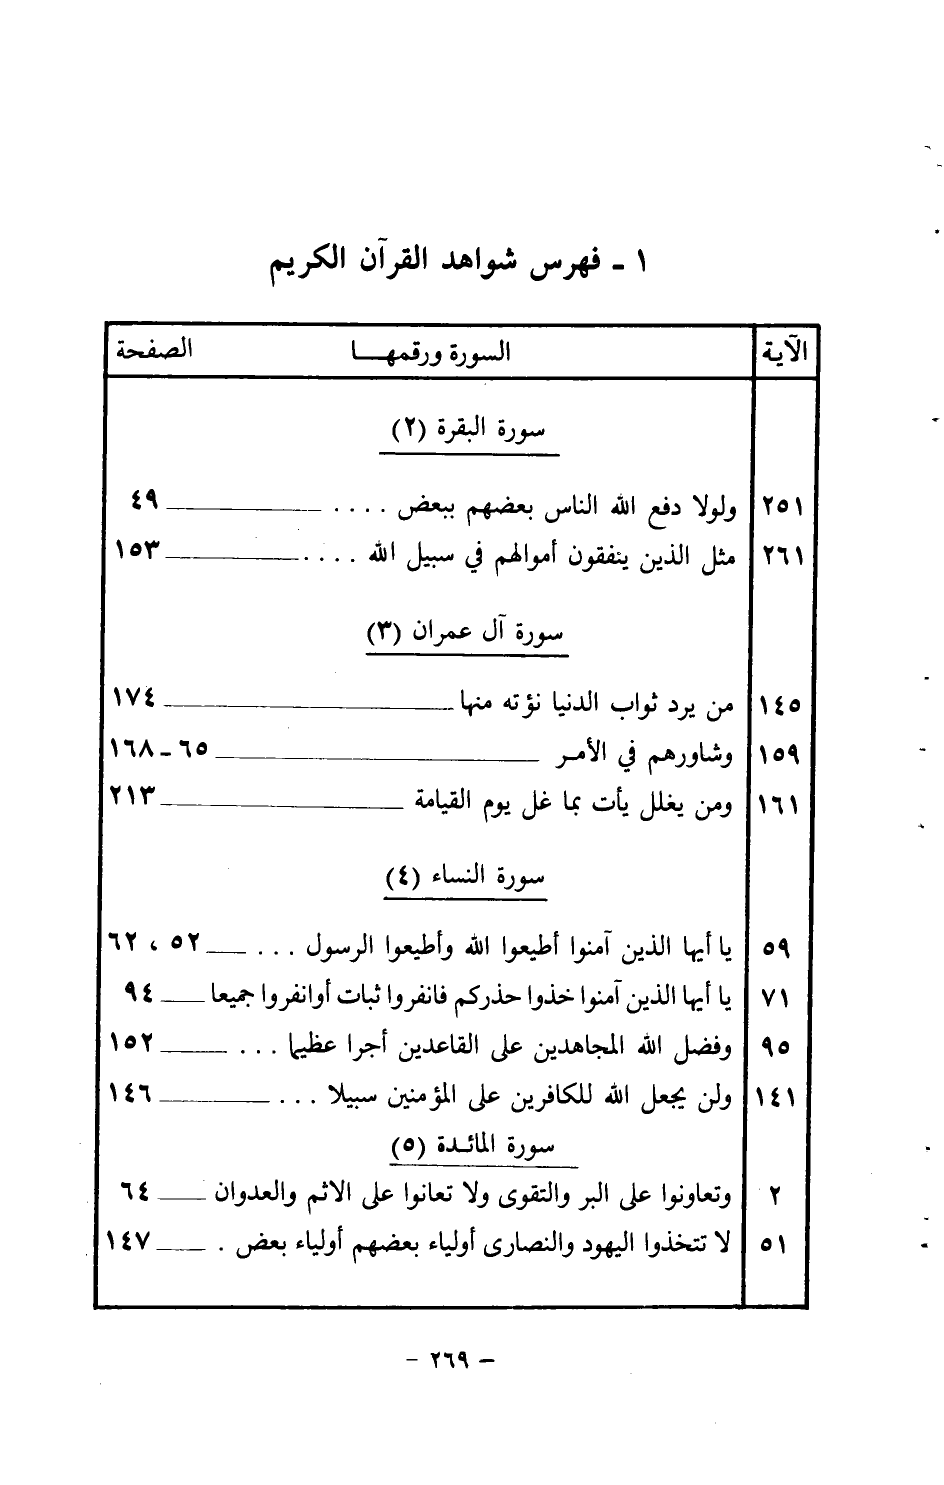 ١ ـ فهرس شواهد القرآن الكريم
الآية السورة ورقمهـــا الصفحة
سورة البقرة (٢)
٢٥١ ولولا دفع الله الناس بعضهم ببعض . . . . ٤٩
٢٦١ مثل الذين ينفقون أموالهم في سبيل الله . . . . ١٥٣
سورة آل عمران (٣)
١٤٥ من يرد ثواب الدنيا نؤته منها ١٧٤
١٥٩ وشاورهم في الأمـر ٦٥ ـ ١٦٨
١٦١ ومن يغلل يأت بما غل يوم القيامة ٢١٣
سورة النساء (٤)
٥٩ يا أيها الذين آمنوا أطيعوا الله وأطيعوا الرسول . . . ٥٢ ، ٦٢
٧١ يا أيها الذين آمنوا خذوا حذركم فانفروا ثبات أوانفروا جميعا ٩٤
٩٥ وفضل الله المجاهدين على القاعدين أجرا عظيما . . . ١٥٢
١٤١ ولن يجعل الله للكافرين على المؤمنين سبيلا . . . ١٤٦
سورة المائـدة (٥)
٢ وتعاونوا على البر والتقوى ولا تعانوا على الاثم والعدوان ٦٤
٥١ لا تتخذوا اليهود والنصارى أولياء بعضهم أولياء بعض . ١٤٧
– ٢٦٩ –